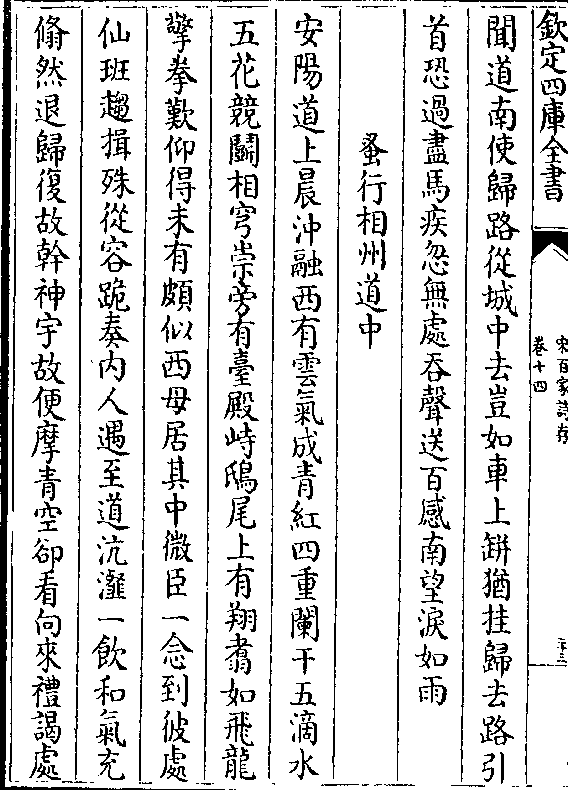 欽定四庫全書
宋百家詩存
卷十四
聞道南使歸路從城中去豈如車上缾猶挂歸去路引
首恐過盡馬疾忽無處吞聲送百感南望淚如雨
蚤行相州道中
安陽道上晨沖融西有雲氣成青紅四重闌干五滴水
五花競鬭相穹崇旁有臺殿峙鴟尾上有翔翥如飛龍
擎拳歎仰得未有頗似西母居其中微臣一念到彼處
仙班趨揖殊從容跪奏内人遇至道沆瀣一飲和氣充
翛然退歸復故幹神宇故便摩青空卻看向來禮謁處